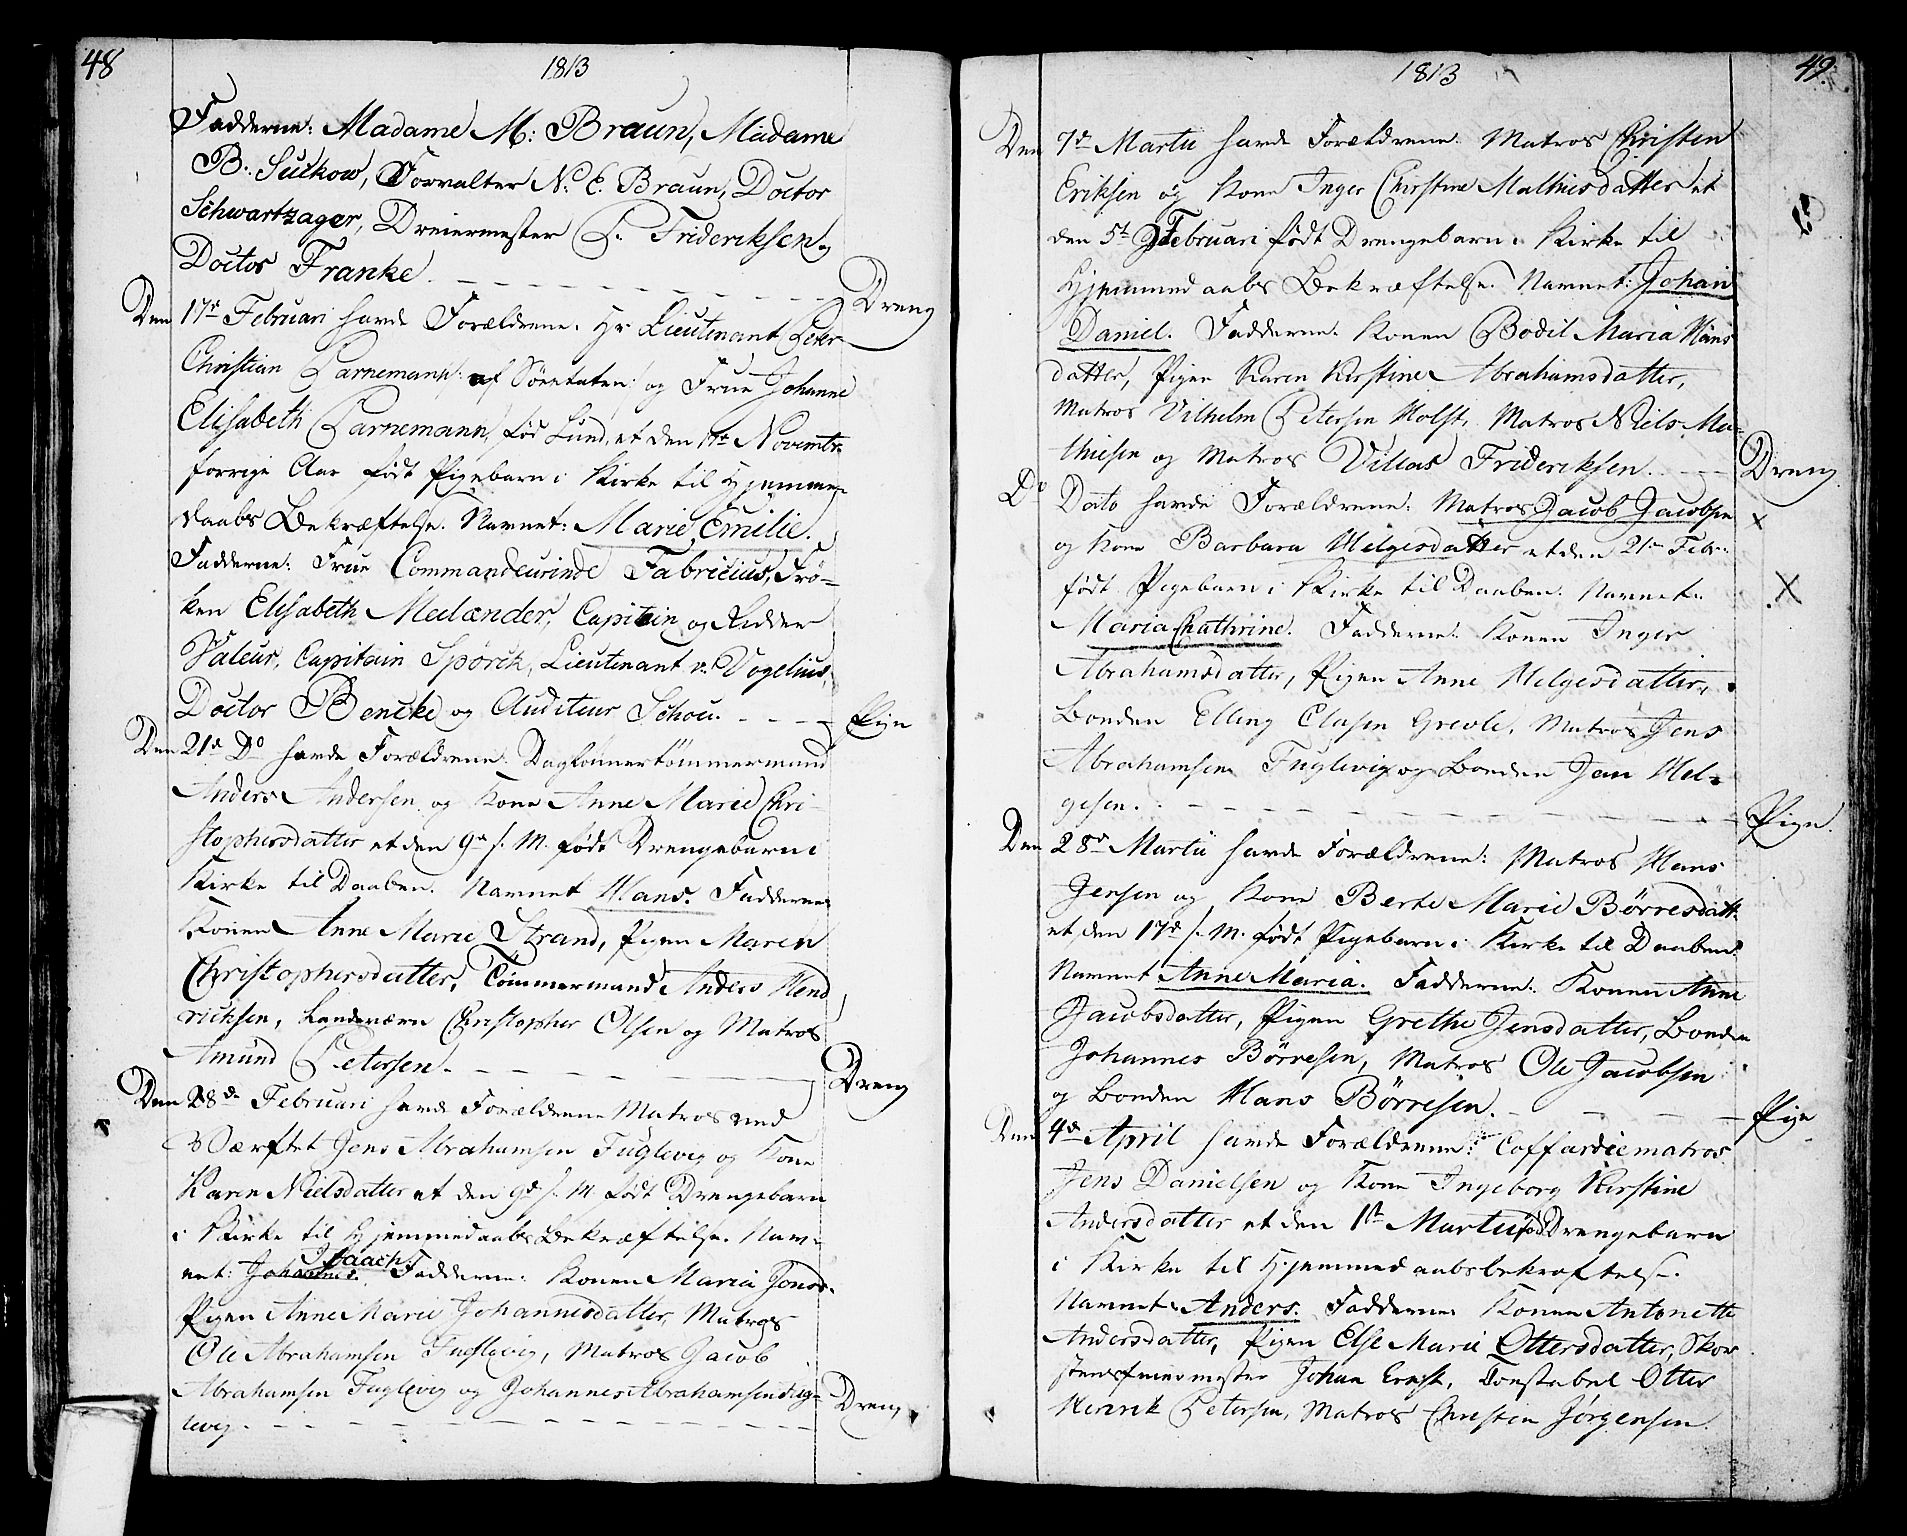 48
1813
Fadderne: Madame M: Braun, Madame
B. Suckow, Forvalter N. E. Braun, Doctor
Schwartzager, Dreiermester L. Frideriksen og
Doctor Franke.
Dreng
Den 17de Februari havde Forældrene: Hr Lieutenant Peter
Christian Parnemann: af Søeetaten: og Frue Johanne
Elisabeth Parnemann, fød Lund, et den 17de Novembr
forrige Aar født Pigebarn i Kirke til Hjemme-
daabs Bekræftelse. Navnet: Marie Emilie.
Fadderne: Frue Commandeurinde Fabricius, Frö-
ken Elisabeth Meelænder, Capitein og Ridder
Valeur, Capitain Spörck, Lieutenant v. Vogelius,
Doctor Bencke og Auditeur Schou.
Pige
Den 21de Do havde Forældrene: Daglønnertømmermand
Anders Andersen og Kone Anne Marie Chri-
stophersdatter et den 9de s. M. født Drengebarn i
Kirke til Daaben. Navnet Hans. Fadderne
Konen Anne Marie Strand, Pigen Maren
Christophersdatter, Tømmermand Anders Hend
ricksen, Landeværn Christopher Olsen og Matros
Amund Petersen.
Dreng
Den 28de Februari havde Forældrene Matros ved
Værftet Jens Abrahamsen Fuglevig og Kone
Karen Nielsdatter et den 9de s. M. født Drengebarn
i Kirke til Hjemmedaabs Bekræftelse. Nav-
Isaach.
net: Johannes. Fadderne: Konen Maria Jonsd.
Pigen Anne Marie Johannesdatter, Matros
Ole Abrahamsen Fuglevig, Matros Jacob
Abrahamsen Fuglevig og Johannes Abrahamsen Fug-
levig.
Dreng
49
1813
Den 7de Martii havde Forældrene: Matros Christen
Eriksen og Kone Inger Chirstine Mathiesdatter et
den 5te Februari født Drengebarn i Kirke til
Hjemmedaabs Bekræftelse. Navnet: Johan
Daniel. Fadderne: Konen Bodil Maria Hans
datter, Pigen Karen Kirstine Abrahamsdatter,
Matros Vilhelm Petersen Holst, Matros Niels Ma-
thiesen og Matros Villas Frideriksen.
Dreng.
Do Dato havde Forældrene: Matros Jacob Jacobsen
og Kone Barbara Helgesdatter et den 21de Febr.
født Pigebarn i Kirke til Daaben. Navnet:
Maria Chathrine. Fadderne: Konen Inger
Abrahamsdatter, Pigen Anne Helgesdatter,
Bonden Elling Clasen Grevle, Matros Jens
Abrahamsen Fuglevig og Bonden Jan Hel-
gesen.
Pige.
Den 28de Martii havde Forældrene: Matros Hans
Jensen og Kone Berte Marie Børresdatt.
et den 17de s. M. født Pigebarn i Kirke til Daaben.
Navnet Anne Maria. Fadderne: Konen Anne
Jacobsdatter, Pigen Grethe Jensdatter, Bonden
Johannes Børresen, Matros Ole Jacobsen
og Bonden Hans Børresen.
Pige
Den 4de April havde Forældrene: Coffardiematros
Jens Danielsen og Kone Ingeborg Kirstine
Andersdatter et den 1te Martii født Drengebarn
i Kirke til Hjemmedaabsbekræftelse.
Navnet: Anders. Fadderne: Konen Antonette
Andersdatter, Pigen Else Marie Ottersdatter, Skor
steensfeiermester Johan Ernst, Constabel Otter
Henrik Petersen, Matros Christen Jørgensen.